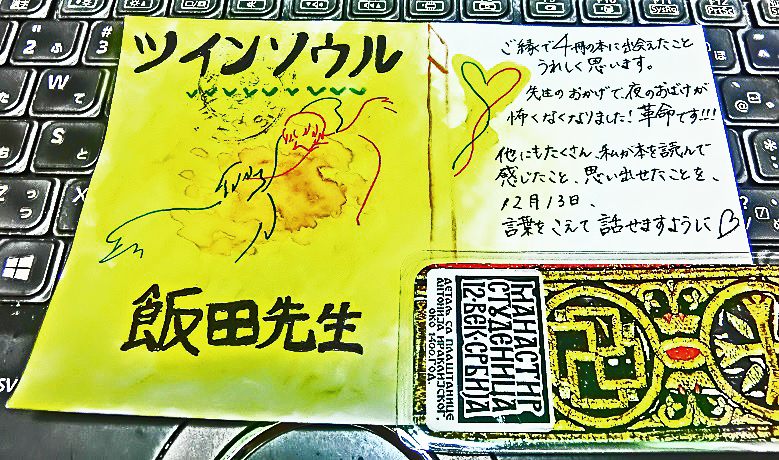 ツインソウル
飯田先生
ご縁で4冊の本に出会えたこと
うれしく思います。
先生のおかげで、夜のおばけが
怖くなくなりました!革命です!!!
他にもたくさん、私が本を読んで
感じたこと、思い出せたことを、
12月13日、
言葉をこえて話せますように♡
МАНАСТИР
СТУДЕНИЦА
12.ВЕК·СРБИЈА
ДЕТАЉ СА ПЛАШТАНИЦЕ
АНТОНИЈА ИРАКЛИЈСКОГ.
ОКО 1400 ГОД.
2
ふ
#
3
W
て
S
と
SV